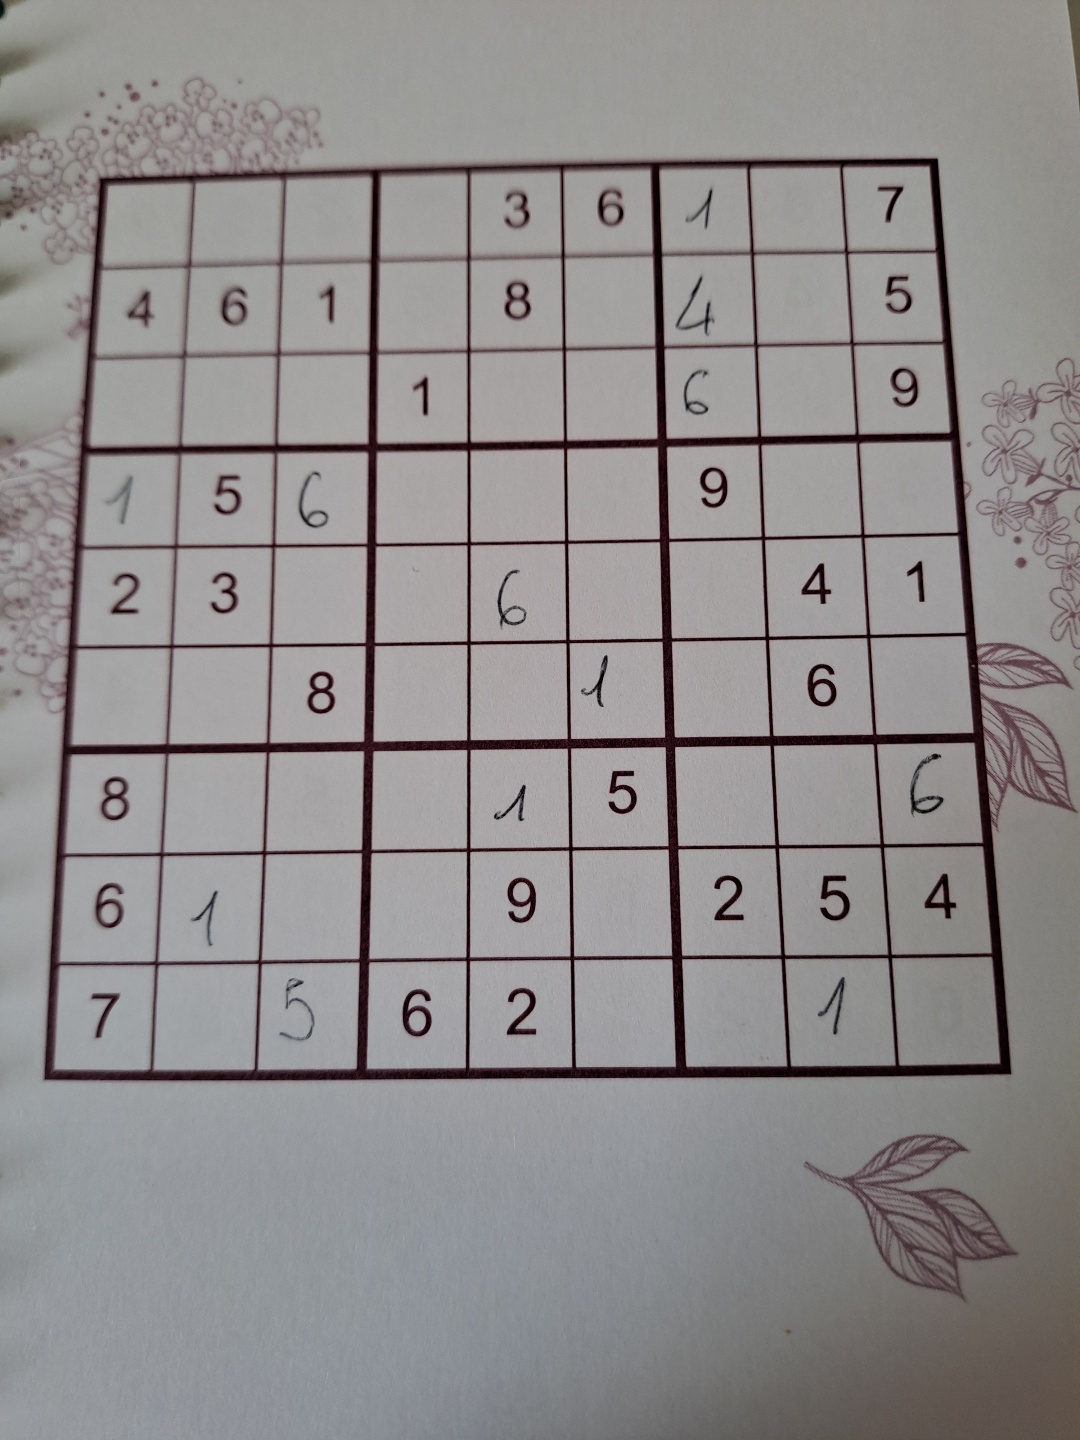 3 6 1 7
4 6 1 8 4 5
1 6 9
1 5 6 9
2 3 6 4 1
8 1 6
8 1 5 6
6 1 9 2 5 4
7 5 6 2 1